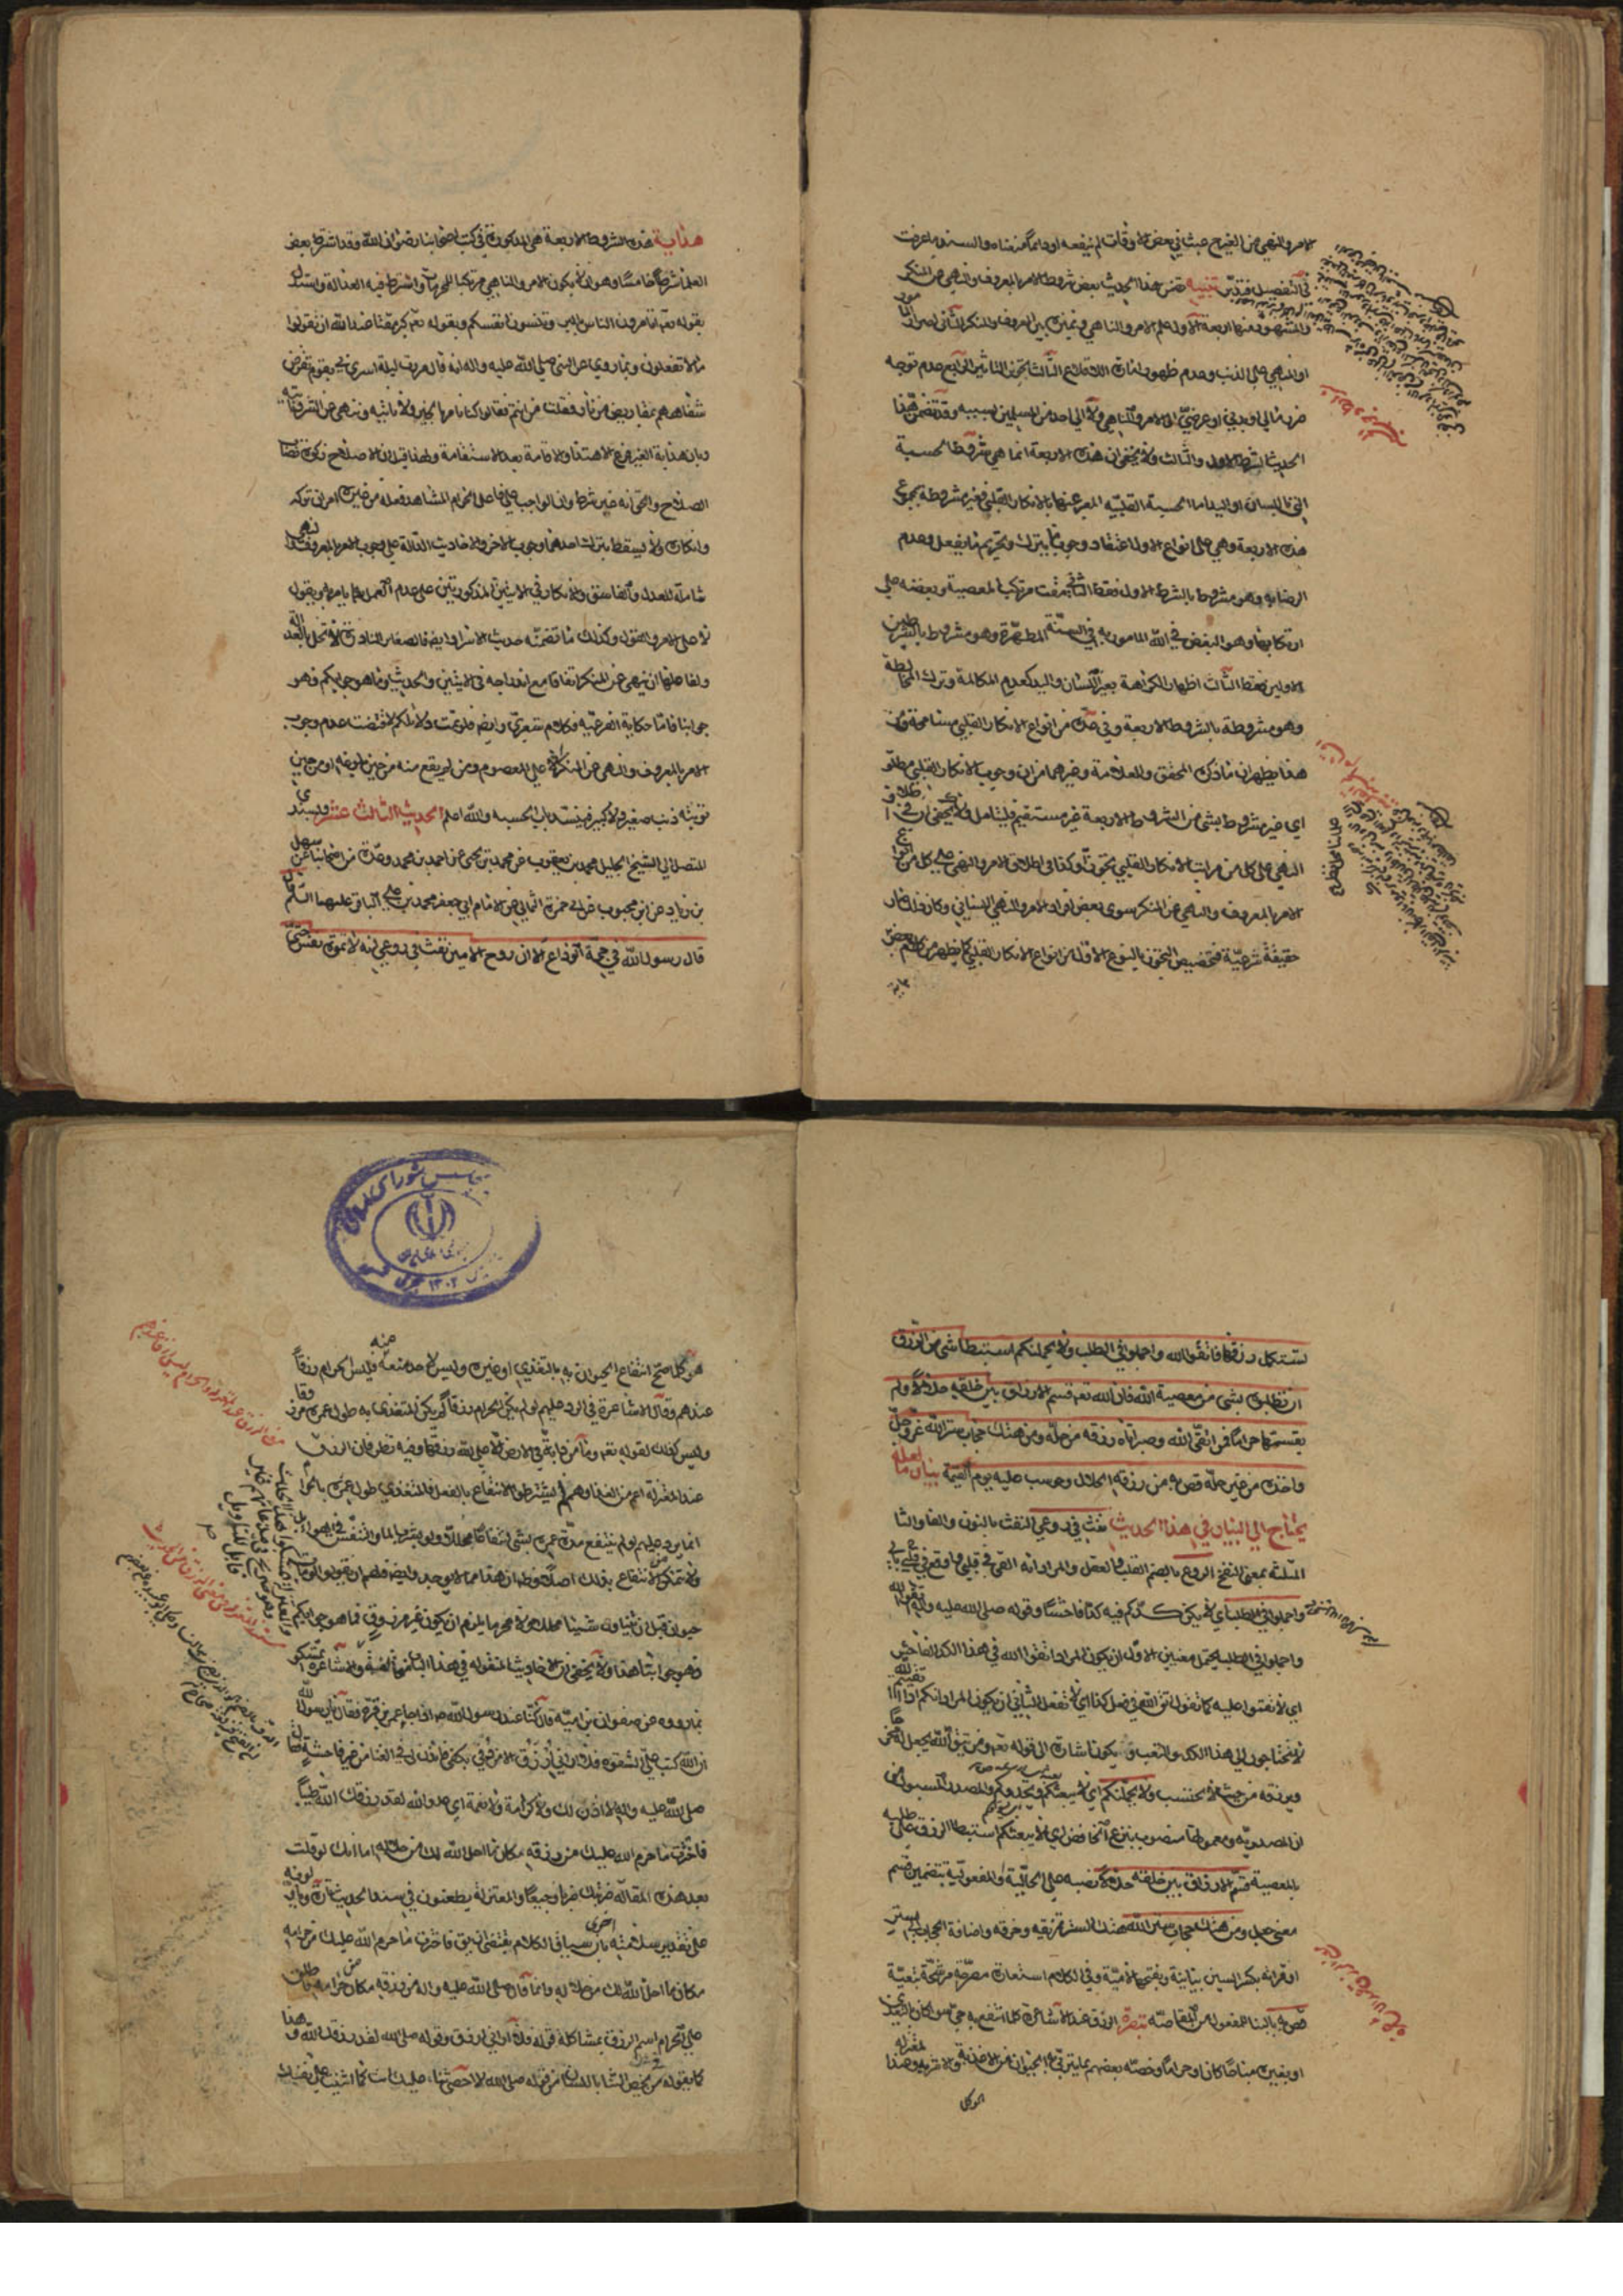 الامر والنهي من الغير ح عبث في بعض الاوقات لم ينفعه او دائما كمن علم والسند ما عرفت
في التفصيل فتدبر تنبيه تضمن هذا الحديث بعض شروط الامر بالمعروف والنهي عن المنكر
والمشهور منها اربعة الاول علم الامر والناهي وتميزه بين المعروف والمنكر الثاني اصرار المامور
او المنهي على الذنب وعدم ظهور امارات الاقلاع الثالث تجويز التاثير الرابع عدم توجه
ضرر مالي او بدني او عرضي الى الامر والناهي ولا الى احد من المسلمين بسببه وقد تضمن هذا
الحديث الشرط الاول والثالث ولا يخفى ان هذه الاربعة انما هي شروط الحسبة
التي باللسان او اليد اما الحسبة القلبية المعبر عنها بالانكار القلبي فغير مشروطة بمجموع
هذه الاربعة وهي على انواع الاول اعتقاد وجوب ما يترك وتحريم ما يفعل وعدم
الرضا به وهو مشروط بالشرط الاول فقط الثاني مقت مرتكب المعصية وبغضه على
ارتكابها وهو البغض في الله المامور به في السنة المطهرة وهو مشروط بالشرطين
الاولين فقط الثالث اظهار الكراهة بغير اللسان واليد كعدم المكالمة وترك المخالطة
وهو مشروطة بالشروط الاربعة وفي عده من انواع الانكار القلبي مسامحة ومن
هذا يظهر ان ما ذكره المحقق والعلامة وغيرهما من ان وجوب الانكار القلبي مطلق
اي غير مشروط بشئ من الشروط الاربعة غير مستقيم فليتامل ولا يخفى ان في اطلاق
النهي على كل من مراتب الانكار القلبي تجوزا وكذا في اطلاق الامر والنهي على كل من انواع
الامر بالمعروف والنهي عن المنكر سوى بعض افراد الامر والنهي اللساني وكان ذلك صار
حقيقة شرعية فتخصيص التجوز بالنوع الاول من انواع الانكار القلبي كما يظهر من كلام بعض
هداية هذه الشروط الاربعة هي المذكورة في كتب اصحابنا رضوان الله وقد اشترط بعض
العلماء شرطا خامسا وهو ان لا يكون الامر والناهي مرتكبا للمحرمات واشترط فيه العدالة واستدل
بقوله تعالى اتامرون الناس بالبر وتنسون انفسكم وبقوله تعالى كبر مقتا عند الله ان تقولوا
ما لا تفعلون وبما روي عن النبي صلى الله عليه واله انه قال مررت ليلة اسري بي بقوم تقرض
شفاههم بمقاريض من نار فقلت من انتم فقالوا كنا نامر بالخير ولا ناتيه وننهى عن الشر وناتيه
وبان هداية الغير فرع الاهتداء والاقامة بعد الاستقامة ولهذا قيل ان الاصلاح زكوة نصاب
الصلاح والحق انه غير شرط وان الواجب على فاعل الحرام المشاهد فعله من غيره امران تركه
وانكاره ولا يسقط بترك احدهما وجوب الاخر والاحاديث الدالة على وجوب الامر بالمعروف والنهي
شاملة للعدل والفاسق والانكار في الايتين المذكورتين على عدم العمل بما يامر به ويقول
لا على الامر والقول وكذلك ما تضمنه حديث الاسراء وايضا فالصغاير النادرة لا تخل بالعدالة
ولفاعلها ان ينهى عن المنكر اتفاقا مع اندراجه في الايتين والحديث وما هو جوابكم فهو
جوابنا فاما حكاية الفرعية فكلام شعري وايضا فلو تمت دلائلكم لاقتضت عدم وجوب
الامر بالمعروف والنهي عن المنكر الا على المعصوم ومن لم يقع منه من حين بلوغه او من حين
توبته ذنب صغير ولا كبير فينسد باب الحسبة والله اعلم الحديث الثالث عشر وبسندي
المتصل الى الشيخ الجليل محمد بن يعقوب عن محمد بن يحيى عن احمد بن محمد وعدة من اصحابنا عن سهل
بن زياد عن ابن محبوب عن ابي حمزة الثمالي عن الامام ابي جعفر محمد بن علي الباقر عليهما السلم قال
قال رسول الله في حجة الوداع الا ان روح الامين نفث في روعي انه لا تموت نفس حتى
تستكمل رزقها فاتقوا الله واجملوا في الطلب ولا يحملنكم استبطاء شئ من الرزق
ان تطلبوه بشئ من معصية الله فان الله تعالى قسم الارزاق بين خلقه حلالا ولم
يقسمها حراما فمن اتقى الله وصبر اتاه رزقه من حله ومن هتك حجاب ستر الله عز وجل
واخذه من غير حله قص به من رزقه الحلال وحوسب عليه يوم القيمة بيان ما لعله
يحتاج الى البيان في هذا الحديث نفث في روعي النفث بالنون والفاء والثاء
المثلثة بمعنى النفخ الروع بالضم القلب والعقل والمراد انه القى في قلبي واوقع في بالي
واجملوا في الطلب اي لا يكن كدكم فيه كدا فاحشا وقوله صلى الله عليه واله اتقوا الله
واجملوا في الطلب يحتمل معنيين الاول ان يكون المراد اتقوا الله في هذا الكد الفاحش
اي لا تقيموا عليه كما تقول اتق الله في فعل كذا اي لا تفعله الثاني ان يكون المراد انكم اذا اتقيتم الله
لا تحتاجون الى هذا الكد والتعب ويكون اشارة الى قوله تعالى ومن يتق الله يجعل له مخرجا
ويرزقه من حيث لا يحتسب ولا يحملنكم اي لا يبعثكم ويحدوكم والمصدر المسبوك من
ان المصدرية ومعمولها منصوب بنزع الخافض اي لا يبعثكم استبطاء الرزق على طلبه
بالمعصية قسم الارزاق بين خلقه حلالا نصبه على الحالية او المفعولية بتضمين قسم
معنى جعل ومن هتك حجاب ستر الله هتك الستر تمزيقه وخرقه واضافة الحجاب الى الستر
ان قرئ بكسر السين بيانية وبفتحها لامية وفي الكلام استعارة مصرحة مرشحة تبعية
قص به بالبناء للمفعول من المقاصة تبصرة الرزق عند الاشاعرة كلما انتفع به حي سواء كان بالتغذي
او بغيره مباحا كان او حراما وخصه بعضهم بما يتربى به الحيوان من الاغذية والاشربة وعند المعتزلة
هو كلما صح انتفاع الحيوان به بالتغذي او غيره وليس لاحد منعه منه فليس الحرام رزقا
عندهم وقال الاشاعرة في الرد عليهم لو لم يكن الحرام رزقا لم يكن المتغذي به طول عمره مرزوقا
وليس كذلك لقوله تعالى وما من دابة في الارض الا على الله رزقها وفيه نظر فان الرزق
عند المعتزلة اعم من الغذاء وهم لم يشترطوا الانتفاع بالفعل فالمتغذي طول عمره بالحرام
انما يرد عليهم لو لم ينتفع مدة عمره بشئ انتفاعا محللا ولو بشرب الماء والتنفس في الهواء
ولا تمكن من الانتفاع بذلك اصلا وظاهر ان هذا مما لا يوجد وايضا فلهم ان يقولوا لو مات
حيوان قبل ان يتناول شيئا محللا ولا محرما يلزم ان يكون غير مرزوق فما هو جوابكم
فهو جوابنا هذا ولا يخفى ان الاحاديث المنقولة في هذا الباب متخالفة والاشاعرة تمسكوا
بما رووه عن صفوان بن امية قال كنا عند رسول الله ص اذ جاء عمر بن قرة فقال يا رسول الله
ان الله كتب علي الشقوة فلا اراني ارزق الا من دفي بكفي فاذن لي في الغناء من غير فاحشة فقال
صلى الله عليه واله لا اذن لك ولا كرامة ولا نعمة اي عدو الله لقد رزقك الله طيبا
فاخترت ما حرم الله عليك من رزقه مكان ما احل الله لك من حلاله اما انك لو قلت
بعد هذه المقالة ضربتك ضربا وجيعا والمعتزلة يطعنون في سند الحديث تارة ويأولونه
على تقدير سلامته اخرى بان سياق الكلام يقتضي ان يق فاخترت ما حرم الله عليك من حرامه
مكان ما احل الله لك من حلاله وانما قال صلى الله عليه واله من رزقه مكان من حرامه فاطلق
على الحرام اسم الرزق بمشاكلة قوله فلا اراني ارزق وقوله صلى الله لقد رزقك الله وهذا
كما يقوله من يخص الثناء باللسان في قوله صلى الله لا احصي ثناء عليك انت كما اثنيت على نفسك